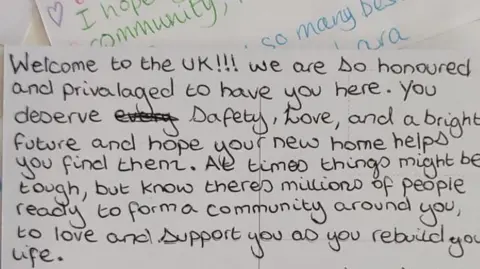 I hope
community,
so many bes
ara
Welcome to the UK!!! we are so honoured
and privalaged to have you here. You
deserve every safety, Love, and a bright
future and hope your new home helps
you find them. At times things might be
tough, but know theres millions of people
ready to form a community around you,
to love and support you as you rebuild you
life.